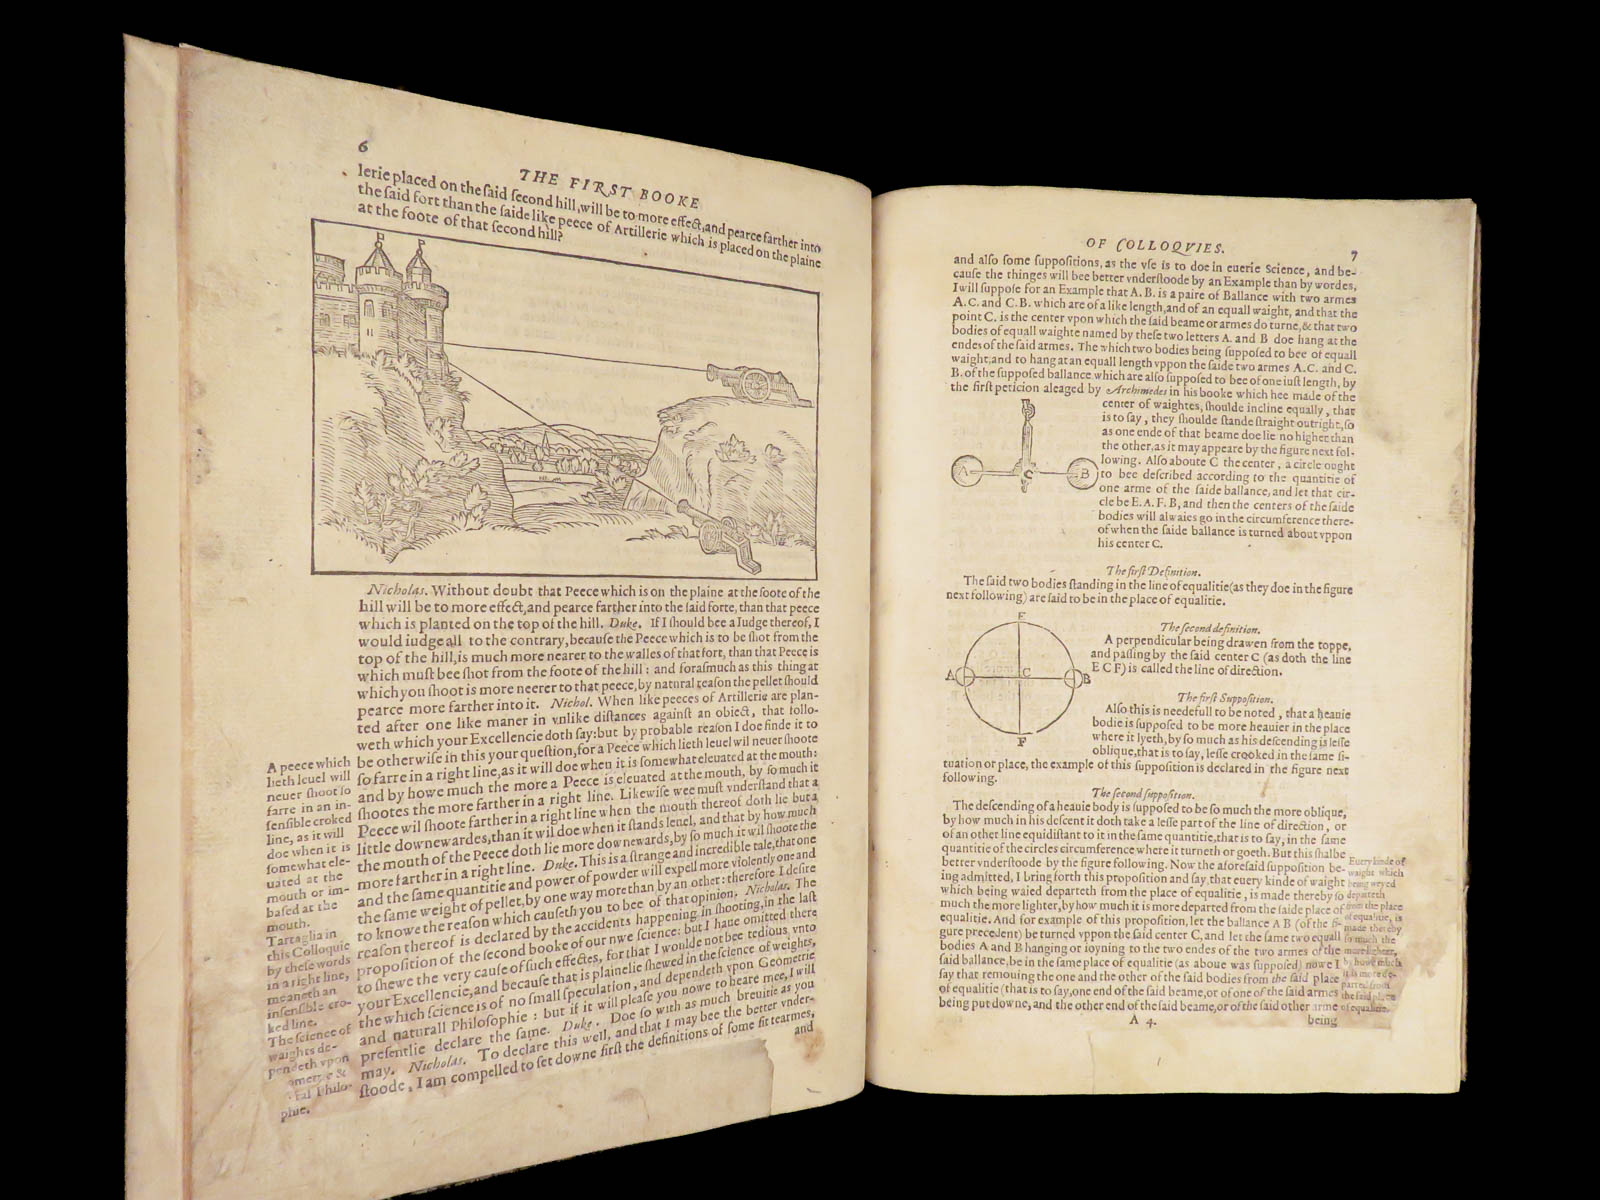 6
THE FIRST BOOKE
lerie placed on the ſaid ſecond hill, will be to more effect, and pearce farther into
the ſaid fort than the ſaide like peece of Artillerie which is placed on the plaine
at the foote of that ſecond hill?
Nicholas. Without doubt that Peece which is on the plaine at the foote of the
hill will be to more effect, and pearce farther into the ſaid forte, than that peece
which is planted on the top of the hill. Duke. If I ſhould bee a Iudge thereof, I
would iudge all to the contrary, becauſe the Peece which is to be ſhot from the
top of the hill, is much more nearer to the walles of that fort, than that Peece is
which muſt bee ſhot from the foote of the hill: and foraſmuch as this thing at
which you ſhoot is more neerer to that peece, by natural reaſon the pellet ſhould
pearce more farther into it. Nichol. When like peeces of Artillerie are plan-
ted after one like maner in vnlike diſtances againſt an obiect, that follo-
weth which your Excellencie doth ſay: but by probable reaſon I doe finde it to
be otherwiſe in this your queſtion, for a Peece which lieth leuel wil neuer ſhoote
ſo farre in a right line, as it will doe when it is ſomewhat eleuated at the mouth:
and by howe much the more a Peece is eleuated at the mouth, by ſo much it
ſhootes the more farther in a right line. Likewiſe wee muſt vnderſtand that a
Peece wil ſhoote farther in a right line when the mouth thereof doth lie but a
little downewardes, than it wil doe when it ſtands leuel, and that by how much
the mouth of the Peece doth lie more downewards, by ſo much it wil ſhoote the
more farther in a right line. Duke. This is a ſtrange and incredible tale, that one
and the ſame quantitie and power of powder will expell more violently one and
the ſame weight of pellet, by one way more than by an other: therefore I deſire
to knowe the reaſon which cauſeth you to bee of that opinion. Nicholas. The
reaſon thereof is declared by the accidents happening in ſhooting, in the laſt
propoſition of the ſecond booke of our nwe ſcience: but I haue omitted there
to ſhewe the very cauſe of ſuch effectes, for that I woulde not bee tedious vnto
your Excellencie, and becauſe that is plainelie ſhewed in the ſcience of weights,
the which ſcience is of no ſmall ſpeculation, and dependeth vpon Geometrie
and naturall Philoſophie: but if it will pleaſe you nowe to heare mee, I will
preſentlie declare the ſame. Duke. Doe ſo with as much breuitie as you
may. Nicholas. To declare this well, and that I may bee the better vnder-
ſtoode, I am compelled to ſet downe firſt the definitions of ſome fit tearmes,
and
A peece which
lieth leuel will
neuer ſhoot ſo
farre in an in-
ſenſible croked
line, as it will
doe when it is
ſomewhat ele-
uated at the
mouth or im-
baſed at the
mouth.
Tartaglia in
this Colloquie
by theſe words
in a right line,
meaneth an
inſenſible cro-
ked line.
The ſcience of
waights de-
pendeth vpon
&
Philo-
phie.
OF COLLOQVIES.
7
and alſo ſome ſuppoſitions, as the vſe is to doe in euerie Science, and be-
cauſe the thinges will bee better vnderſtoode by an Example than by wordes,
I will ſuppoſe for an Example that A. B. is a paire of Ballance with two armes
A. C. and C. B. which are of a like length, and of an equall waight, and that the
point C. is the center vpon which the ſaid beame or armes do turne, & that two
bodies of equall waighte named by theſe two letters A. and B doe hang at the
endes of the ſaid armes. The which two bodies being ſuppoſed to bee of equall
waight, and to hang at an equall length vppon the ſaide two armes A. C. and C.
B. of the ſuppoſed ballance which are alſo ſuppoſed to bee of one iuſt length, by
the firſt peticion aleaged by Archimedes in his booke which hee made of the
center of waightes, ſhoulde incline equally, that
is to ſay, they ſhoulde ſtande ſtraight outright, ſo
as one ende of that beame doe lie no higher than
the other, as it may appeare by the figure next fol-
lowing. Alſo aboute C the center, a circle ought
to bee deſcribed according to the quantitie of
one arme of the ſaide ballance, and let that cir-
cle be E. A. F. B, and then the centers of the ſaide
bodies will alwaies go in the circumference there-
of when the ſaide ballance is turned about vppon
his center C.
A
C
B
The firſt Definition.
The ſaid two bodies ſtanding in the line of equalitie (as they doe in the figure
next following) are ſaid to be in the place of equalitie.
The ſecond definition.
A perpendicular being drawen from the toppe,
and paſſing by the ſaid center C (as doth the line
E C F) is called the line of direction.
E
A
C
B
F
The firſt Suppoſition.
Alſo this is needefull to be noted, that a heauie
bodie is ſuppoſed to be more heauier in the place
where it lyeth, by ſo much as his deſcending is leſſe
oblique, that is to ſay, leſſe crooked in the ſame ſi-
tuation or place, the example of this ſuppoſition is declared in the figure next
following.
The ſecond ſuppoſition.
The deſcending of a heauie body is ſuppoſed to be ſo much the more oblique,
by how much in his deſcent it doth take a leſſe part of the line of direction, or
of an other line equidiſtant to it in the ſame quantitie, that is to ſay, in the ſame
quantitie of the circles circumference where it turneth or goeth. But this ſhalbe
better vnderſtoode by the figure following. Now the aforeſaid ſuppoſition be-
ing admitted, I bring forth this propoſition and ſay, that euery kinde of waight
which being waied departeth from the place of equalitie, is made thereby ſo
much the more lighter, by how much it is more departed from the ſaide place of
equalitie. And for example of this propoſition, let the ballance A B (of the fi-
gure precedent) be turned vppon the ſaid center C, and let the ſame two equall
bodies A and B hanging or ioyning to the two endes of the two armes of the
ſaid ballance, be in the ſame place of equalitie (as aboue was ſuppoſed) nowe I
ſay that remouing the one and the other of the ſaid bodies from the ſaid place
of equalitie (that is to ſay, one end of the ſaid beame, or of one of the ſaid armes
being put downe, and the other end of the ſaid beame, or of the ſaid other arme
A 4.
being
Euery kinde of
waight which
being weyed
departeth
from the place
of equalitie, is
made thereby
ſo much the
more lighter,
by howe much
it is more de-
parted from
the ſaid place
of equalitie.